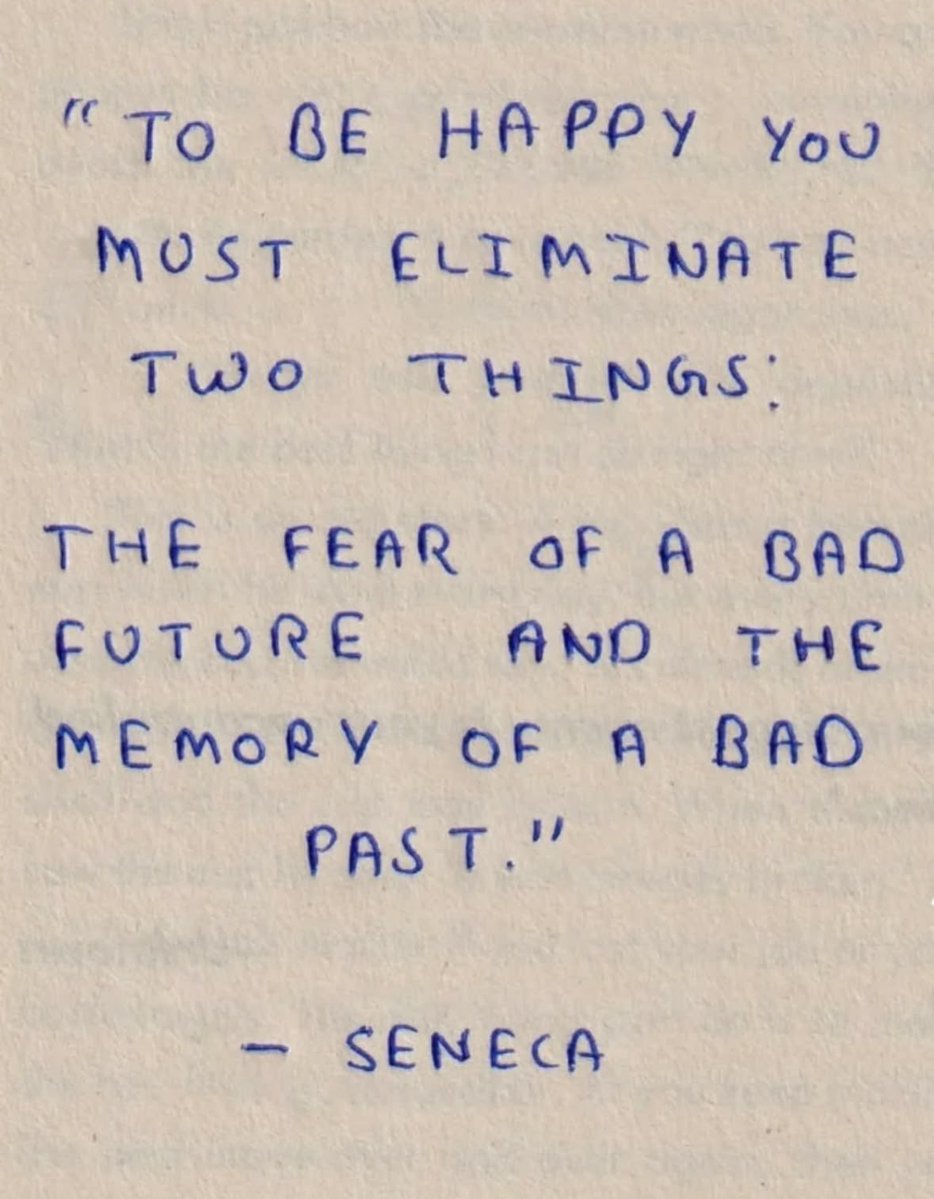 "TO BE HAPPY YOU
MUST ELIMINATE
TWO THINGS:
THE FEAR OF A BAD
FUTURE AND THE
MEMORY OF A BAD
PAST."
– SENECA